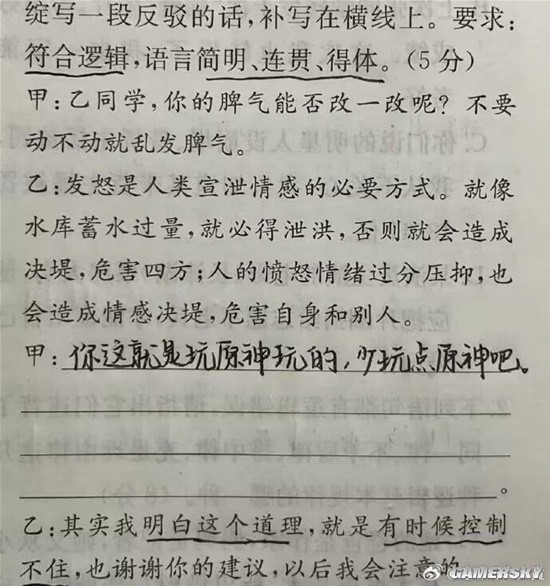 绽写一段反驳的话,补写在横线上。要求:
符合逻辑,语言简明、连贯、得体。(5分)
甲:乙同学,你的脾气能否改一改呢?不要
动不动就乱发脾气。
乙:发怒是人类宣泄情感的必要方式。就像
水库蓄水过量,就必得泄洪,否则就会造成
决堤,危害四方;人的愤怒情绪过分压抑,也
会造成情感决堤,危害自身和别人。
甲:你这就是玩原神玩的,少玩点原神吧。
。
乙:其实我明白这个道理,就是有时候控制
不住,也谢谢你的建议,以后我会注意的
GAMERSKY